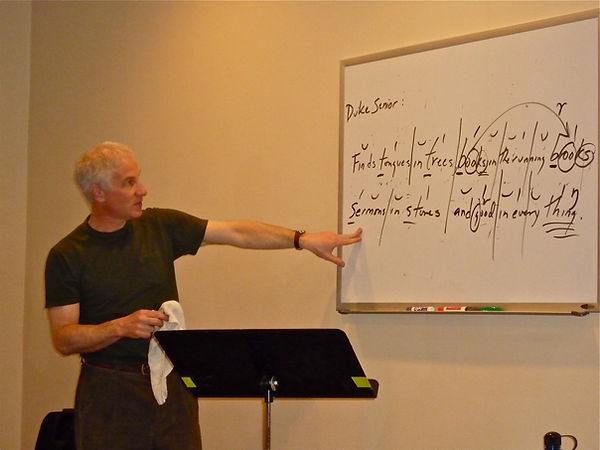 Duke Senior:
Finds tongues in trees books in the running brooks
Sermons in stones and good in every thing.